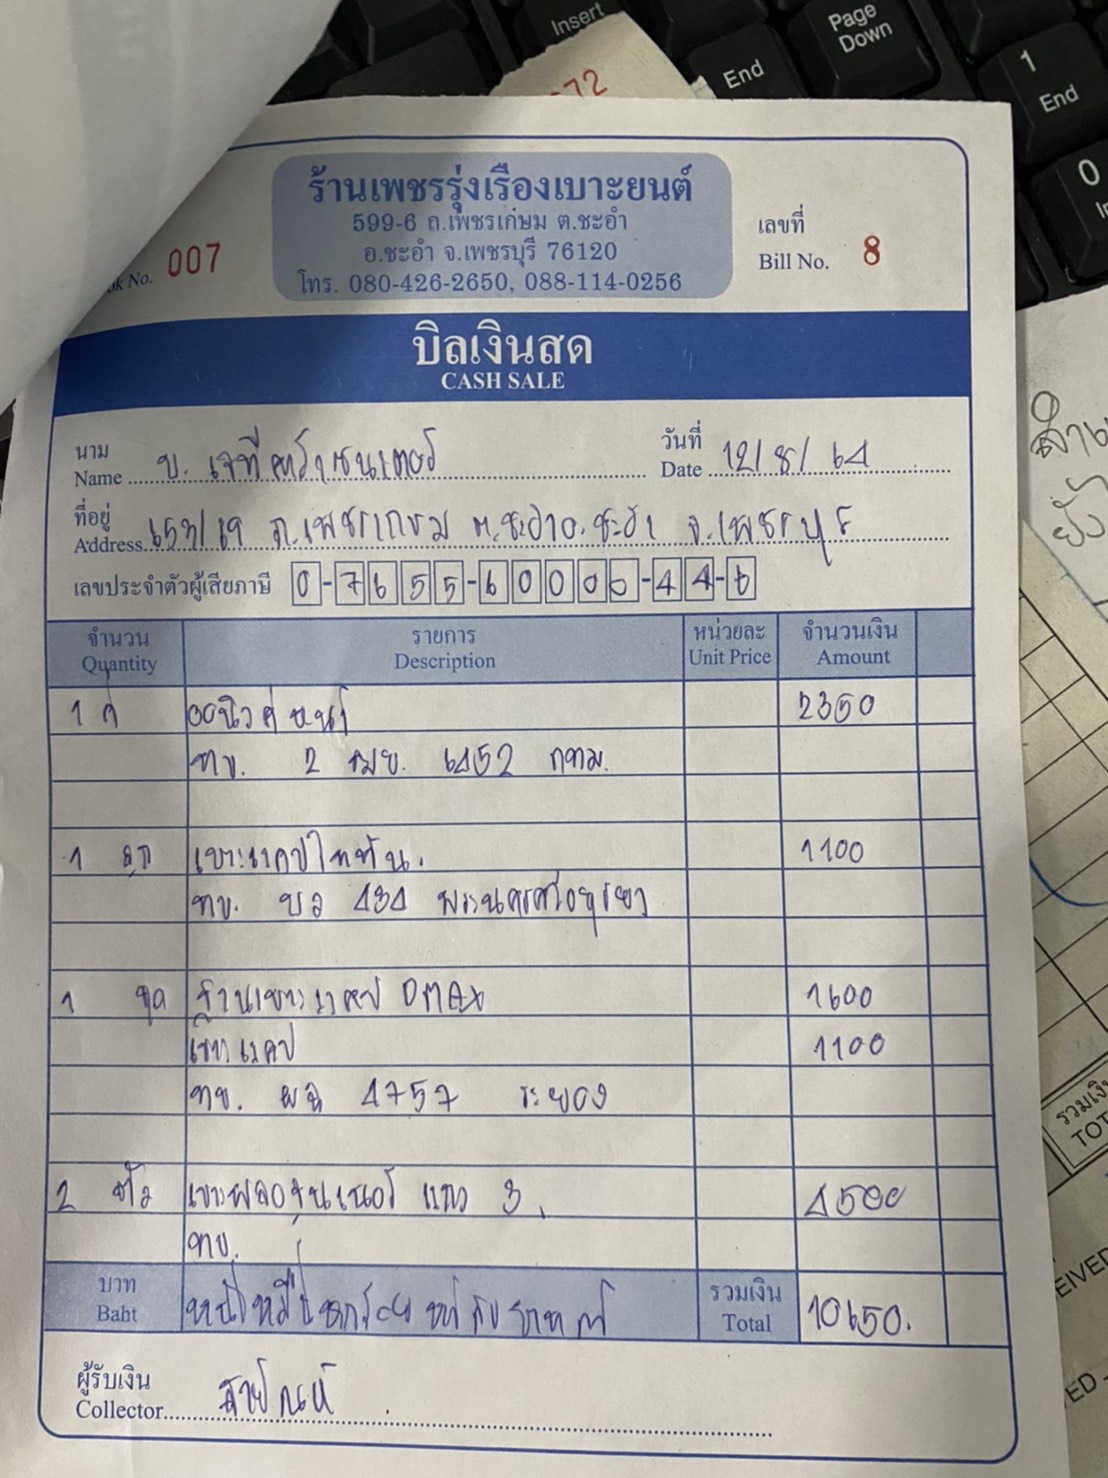 Insert
Page Down
End
1
End
0
72
ร้านเพชรรุ่งเรืองเบาะยนต์
599-6 ถ.เพชรเกษม ต.ชะอำ
อ.ชะอำ จ.เพชรบุรี 76120
โทร. 080-426-2650, 088-114-0256
No. 007
เลขที่
Bill No. 8
บิลเงินสด
CASH SALE
นาม
Name บ. เจที
วันที่
Date 12/8/64
ที่อยู่
Address 653/19 ถ.เพชรเกษม ต.ชะอำ อ.ชะอำ จ.เพชรบุรี
เลขประจำตัวผู้เสียภาษี 0-7655-60000-44-6
จำนวน รายการ หน่วยละ จำนวนเงิน
Quantity Description Unit Price Amount
1 คู่ หน้า 2350
ทบ. 2 ฒย. 6452 กทม.
1 ลูก เบาะแคปไททัน. 1100
ทบ. บว 434 พระนครศรีอยุธยา
1 ชุด ฐานเบาะแคป DMAX 1600
แคป 1100
ทบ. ผฉ 4757 ระยอง
2 ตัว แถว 3 4500
ทบ.
บาท
Baht หนึ่งหมื่นหกร้อยห้าสิบบาทถ้วน
รวมเงิน
Total 10650.
ผู้รับเงิน
Collector
รวมเงิน